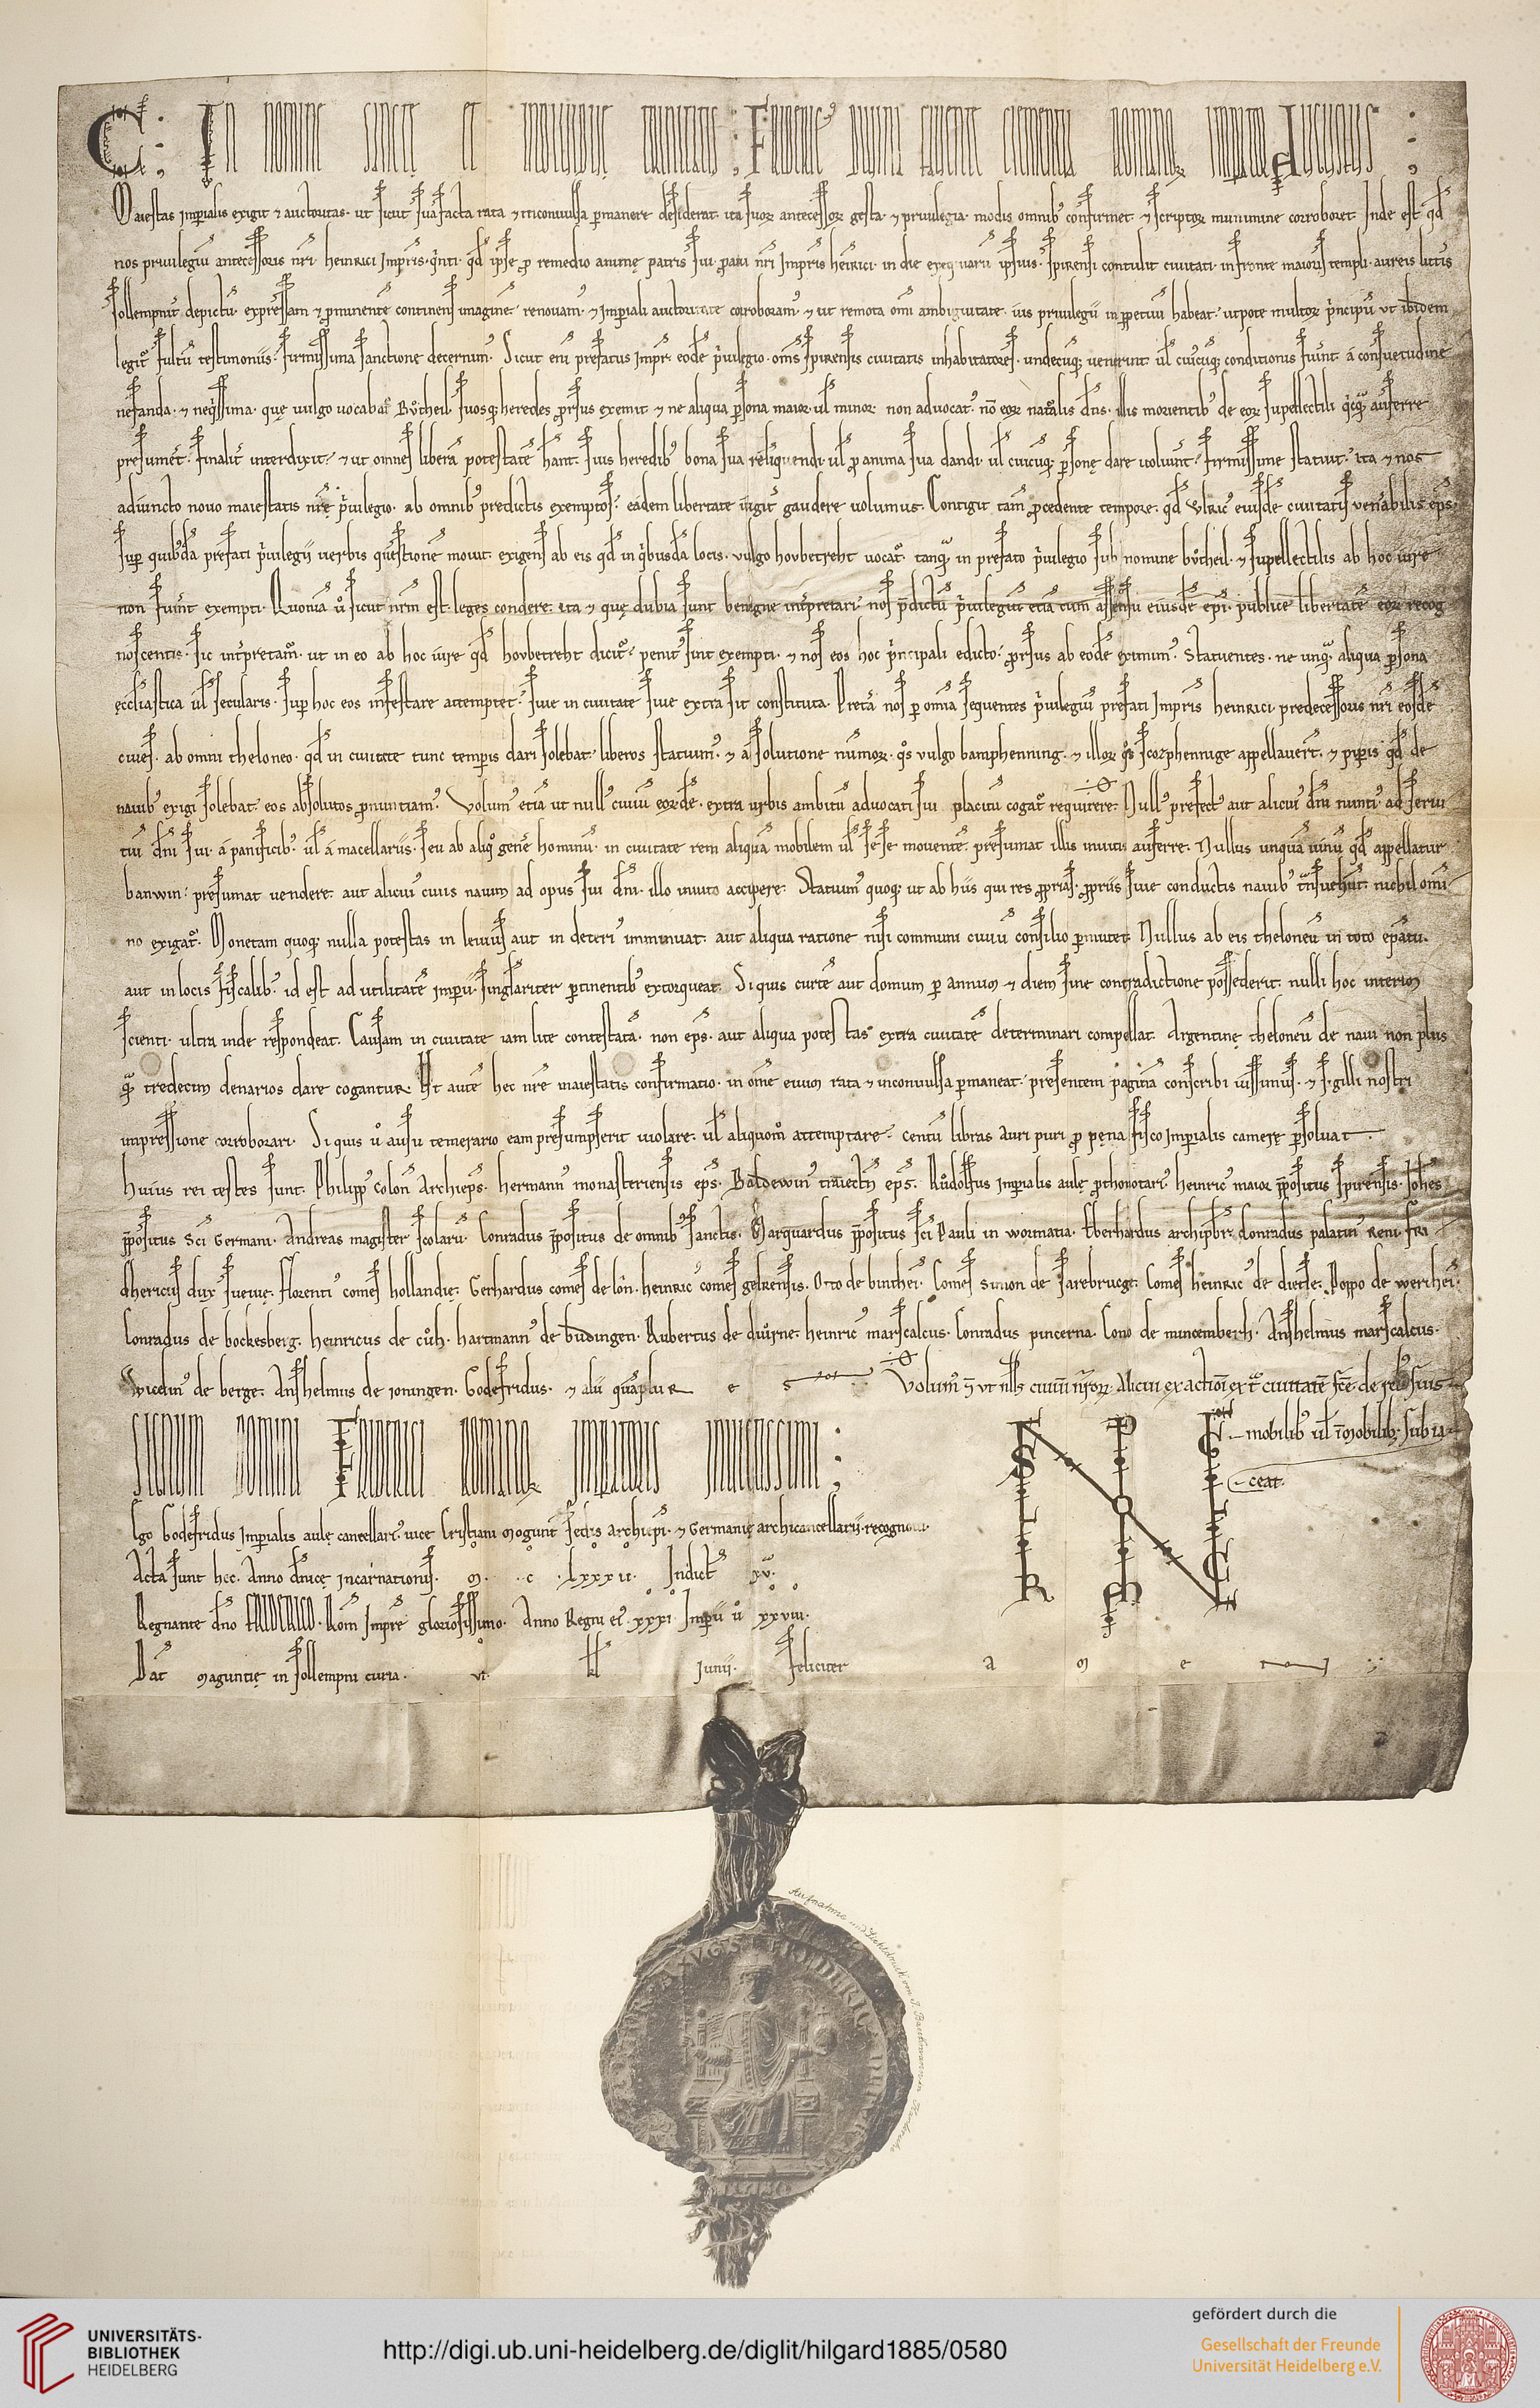 C : In nomine sancte et individue trinitatis : Frideric' divina favente clementia romanor' imp'ator Augustus :
Maiestas imp'ialis exigit & auctoritas. ut sicut sua facta rata & inconvulsa p'manere desiderat. ita suor' antecessor' gesta & privilegia. modis omnib' confirmet & scriptor' munimine corroboret. Inde est q'd
nos privilegiu' antecessoris nr'i heinrici Imp'ris. q'nti. q'd ip'se p' remedio anime patris sui. p'avi nr'i Imp'ris heinrici. in die exequiaru' ipsius. spirensi contulit civitati. in fronte maioris templi. aureis litt'is
sollempnit' depictu'. expressam & p'minente' continens imagine'. renovam'. & imp'iali auctoritate corroboram'. & ut remota om'i ambiguitate. ius privilegii in p'petuu' habeat. utpote multor' p'ncipu' ut ibidem
legit' fultu' testimoniis. firmissima sanctione decernim'. Sicut eni' prefatus Imp'r eode' p'vilegio. om's spirensis civitatis inhabitatores. undecu'q; venerint. ul' cuiuscu'q; conditionis fuerint. a consuetudine
nefanda. & neq'ssima. que vulgo vocabat' Butheil. suosq; heredes prorsus exemit & ne aliqua p'sona maior ul' minor. non advocat'. no' eor' naturalis d'ns. illis morientib' de eor' supellectili q'cq'm auferre
presumeret. finalit' interdixit. & ut omnes libera' potestate' ha'nt. suis heredib' bona sua relinquendi. ul' p' anima sua dandi. ul' cuicu'q; p'sone dare volu'int. firmissime statuit. ita & nos
adiuncto novo maiestatis nr'e p'vilegio. ab omnibus predictis exemptos. eadem libertate iugit' gaudere volumus. Contigit tam' p'cedente tempore. q'd Ulric' eiusde' civitatis venerabilis ep's.
sup' quibusda' prefati p'vilegii verbis questione' movit. exigens ab eis q'd in q'busda' locis. vulgo hovbetreht vocat'. tanq'm in prefato p'vilegio sub nomine butheil. & supellectilis ab hoc iure
non fuerint exempti. Quonia' u' sicut nr'm est leges condere. ita & que dubia sunt benigne int'pretari. nos p'dictu' p'vilegiu' etia' cum assensu eiusde' ep'i. publice libertate' eor' recog
noscentis. sic int'pretam'. ut in eo ab hoc iure q'd hovbetreht dicit'. penit' sint exempti. & nos eos hoc p'ncipali edicto. prorsus ab eode' eximim'. Statuentes. ne unq'm aliqua p'sona
eccl'iastica ul' secularis. sup' hoc eos infestare attemptet. sive in civitate sive extra sit constituta. Preta' nos p' omnia sequentes p'vilegiu' prefati Imp'ris heinrici predecessoris nr'i eosde'
cives. ab omni theloneo. q'd in civitate tunc temporis dari solebat. liberos statuim'. & a solutione numor'. q's vulgo bamphenning. & illor' q's scozphennige appellaver't. & pip'is q'd de
navib' exigi solebat. eos absolutos p'nuntiam'. Volum' etia' ut null' civiu' eor'de'. extra urbis ambitu' advocati sui placitu' cogat' requirere. Null' prefect' aut alicui' d'ni nunti'. ad servi
tiu' d'ni sui. a panificib'. ul' a macellariis. seu ab aliq' gen'e hominu'. in civitate rem aliqua' mobilem ul' sese movente'. presumat illis invitis auferre. Nullus unqua' vinu' q'd appellatur
banwin. presumat vendere. aut alicui' civis navim ad opus sui d'ni. illo invito accipere. Statuim' quoq; ut ab hiis qui res p'prias. p'priis sive conductis navib' t'nsvehunt. nichil omi
no exigat'. Monetam quoq; nulla potestas in levius aut in deteri' imminuat. aut aliqua ratione nisi communi civiu' consilio p'mutet. Nullus ab eis theloneu' in toto ep'atu.
aut in locis fiscalib'. id est ad utilitate' imp'ii. singlariter p'tinentib' extorqueat. Si quis curte' aut domum p' annum & diem sine contradictione possederit. nulli hoc interim
scienti. ultra inde respondeat. Causam in civitate iam lite contestata'. non ep's. aut aliqua potestas extra civitate' determinari compellat. Argentine theloneu' de navi non plus
q'm tredecim denarios dare cogantur. Ut aute' hec nr'e maiestatis confirmatio. in om'e evum rata & inconvulsa p'maneat. presentem pagina' conscribi iussimus. & sigilli nostri
impressione corroborari. Si quis u' ausu temerario eam presumpserit violare. ul' aliquom' attemptare. centu' libras auri puri p' pena fisco imp'ialis camere p'solvat.
Huius rei testes sunt. Philipp' colon' archiep's. hermann' monasteriensis ep's. Baldewin' traiecten' ep's. Rudolfus imp'ialis aule p'thonotari'. heinric' maior p'positus spirensis. Joh'es
p'positus Sc'i Germani. Andreas magister scolaru'. Conradus p'positus de omnib' sanctis. Marquardus p'positus sc'i Pauli in wormatia. Eberhardus archip'br. Conradus palatin' reni. fri
dhericus dux suevie. florenti' comes hollandie. Gerhardus comes de lon. heinric' comes gelrensis. Otto de binthei'. Comes simon de sarebrucge. Comes heinric' de diethe. Poppo de werthei'.
Conradus de bockesberg. heinricus de cuh. hartmann' de budingen. Rubertus de durne. heinric' marscalcus. Conradus pincerna. Cono de mincemberh. Anshelmus marscalcus.
Wicelin' de berge. Anshelmus de ioningen. Godefridus. & alii quaplures. Volum' & ut null's civiu' nr'or'. alicui exactioni ext' civitate' f'ce. de reb' suis
mobilib' ul' i'mobilib'. subia
ceat.
Signum domini Friderici romanor' imp'atoris invictissimi :
Ego Godefridus Imp'ialis aule cancellari'. vice Cristiani Mogunt' sedis archiep'i. & Germanie archicancellarii recognovi.
Acta sunt hec. Anno d'nice incarnationis. M. C. LXXXII. Indict' XV.
Regnante d'no FRIDERICO. Rom' Imp're gloriosissimo. Anno Regni ei' XXXI. Imp'ii u' XXVIII.
Dat' Maguntie in sollempni curia. VI. kl' Junii. feliciter amen
Aufnahme und Lichtdruck von J. Baeckmann in Karlsruhe
UNIVERSITÄTS-
BIBLIOTHEK
HEIDELBERG
http://digi.ub.uni-heidelberg.de/diglit/hilgard1885/0580
gefördert durch die
Gesellschaft der Freunde
Universität Heidelberg e.V.